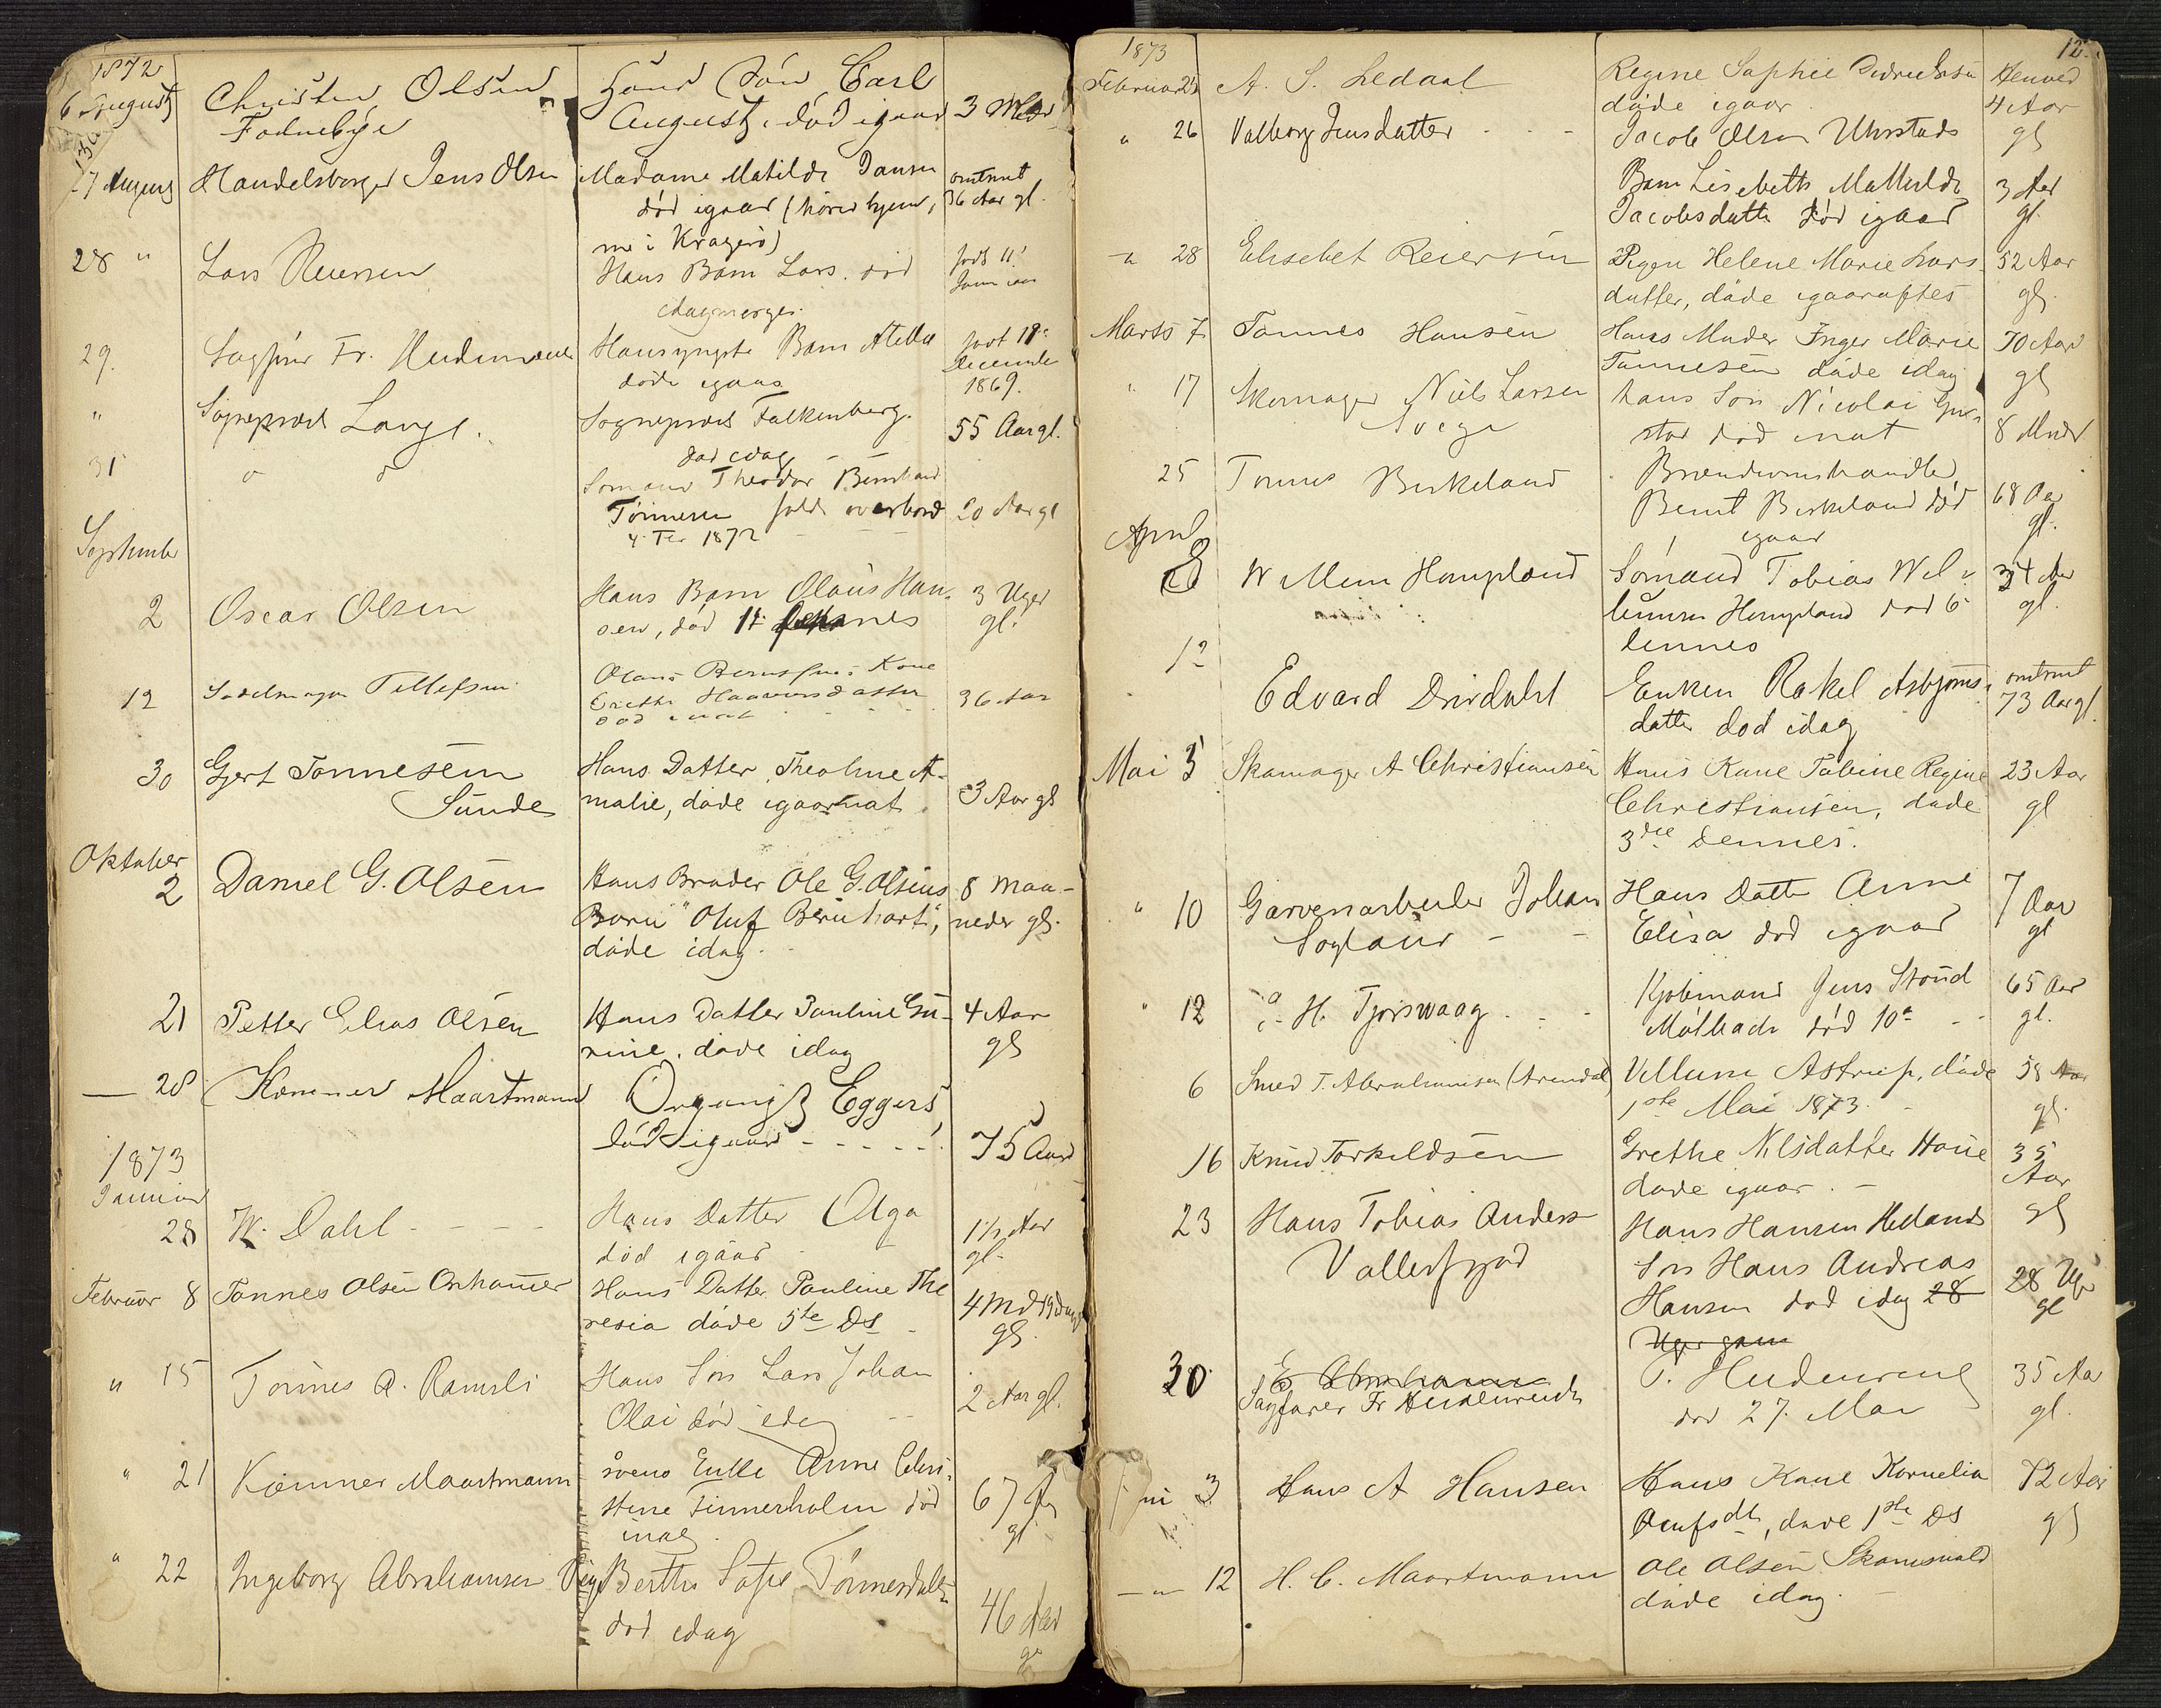 1872
6 August Christen Olsen Hans Søn Carl
August, død igaar 3
27 August Handelsborger Jens Olsen Madame Matilde Jansen omtrent
død igaar (hører hjem- 36 Aar gl.
me i Kragerø)
28 " Lars Hans Barn Lars. død født 11'
idagmorges.
29. Sagfører Fr. Hans yngste Barn født 18de
døde igaar December
1869.
" Sogneprest Lange. Sogneprest Falkenberg. 55 Aar gl.
død idag
31 Sømand Theodor Bernhard
Tønnesen faldt overbord 20 Aar gl
4 1872
September
2 Oscar Olsen Hans Barn Olaus Han- 3 Uger
sen, død 1ste dennes gl.
12 Sadelmager Tellefsen Kone
36 Aar
død inat
30 Gjert Tønnesen Hans Datter Theoline A-
Sunde malie, døde igaarnat 3 Aar gl
Oktober
2 Daniel G. Olsen Hans Broder Ole G. Olsens 8 Maa-
Barn "Oluf Bernhart", neder gl.
døde idag.
21 Petter Elias Olsen Hans Datter Pauline Gu- 4 Aar
rine, døde idag gl
— 28 Kæmner Maartmann Organist Eggers,
død igaar 75 Aar
1873
Januar
28 W. Dahl Hans Datter Olga 1½ Aar
død igaar gl.
Februar 8 Tønnes Olsen Hans Datter Pauline The
resia døde 5te Ds 4 Md 19 Dage
gl.
" 15 Tønnes A. Ramsli Hans Søn Lars Johan
Olai død idag 2 Aar gl.
" 21 Kæmner Maartmann Enke Anne Chri-
stine død 67 Aar
gl
" 22 Ingeborg Abrahamsen Pige Berthe Sofie Tønnesdatter
død idag 46 Aar
gl
12.
1873
Februar 25 A. S. Ledaal Regine Sophie Henved
døde igaar 4 Aar
" 26 Valborg Jensdatter Jacob Olsen gl
Barn Lisebeth Mathilde 3 Aar
Jacobsdatter død igaar gl.
" 28 Elisebet Reiersen Pigen Helene Marie Lars- 52 Aar
datter, døde igaaraftes gl.
Marts 7 Tønnes Hansen Hans Moder Inger Marie 70 Aar
Tønnesen døde idag gl
" 17 Skomager Niels Larsen hans Søn Nicolai
død inat 8 Mndr
25 Tønnes Birkeland Brændevinshandler
Bernt Birkeland død 68 Aar
igaar gl.
April
8 Willum Hompland Sømand Tobias Wil- 34 Aar
lumsen Hompland død 6 gl.
dennes
12 Edvard Drivdahl Enken Rakel Asbjørns- omtrent
datter død idag 73 Aar gl.
Mai 5 Skomager A Christiansen Hans Kone Tobine Regine 23 Aar
Christiansen, døde gl
3die Dennes.
" 10 Garveriarbeider Johan Hans Datter Anne 7 Aar
Sogland Elisa død igaar gl
" 12 H. Tjorswaag Kjøbmand Jens Stoud 65 Aar
død 10de gl.
6 Smed T. Abrahamsen (Arendal) Vellum Astrup, døde 58 Aar
1ste Mai 1873. gl.
16 Knud Torkildsen Grethe Nilsdatter 35
døde igaar Aar
23 Hans Tobias Anders Hans Hansen gl
Søn Hans Andreas
Hansen død idag 28 28 Uger
Uger gam gl
30 Sagfører Fr Heidenreich 35 Aar
død 27. Mai gl.
Juni 3 Hans A Hansen Hans Kone Kornelia 72 Aar
døde 1ste Ds gl
— " — 12 H. C. Maartmann Ole Olsen
døde idag.